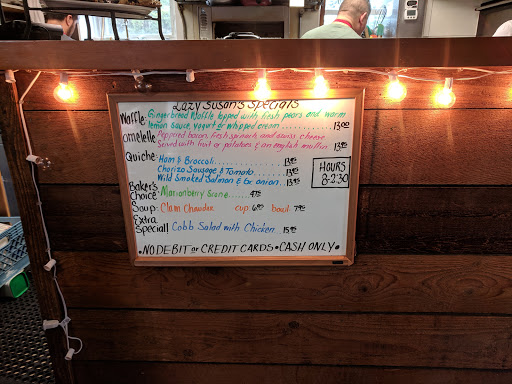 Lazy Susan's Specials
Waffle: Gingerbread Waffle topped with fresh pears and warm
lemon sauce, yogurt or whipped cream 13.00
omelette Peppered bacon, fresh spinach, and swiss cheese
Served with fruit or potatoes & an english muffin 13.95
Quiche: Ham & Broccoli 13.95
Chorizo Sausage & Tomato 13.95
Wild Smoked Salmon & Gr. onion 13.95
HOURS
8-2:30
Baker's
Choice: Marionberry Scone 4.75
Soup: Clam Chowder cup: 6.95 bowl 7.95
Extra
Special! Cobb Salad with Chicken 15.95
• NO DEBIT or CREDIT CARDS • CASH ONLY •